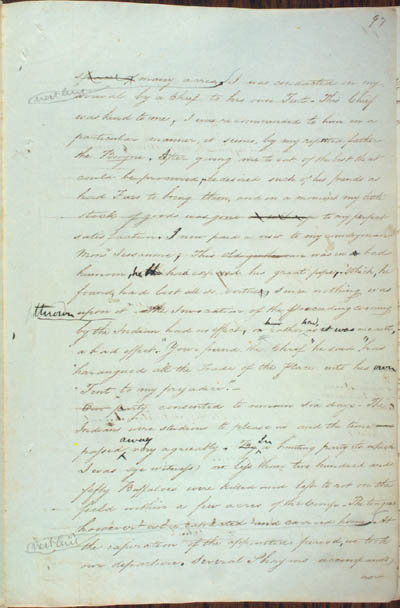 97
many acres, I was conducted on my
arrival by a Chief to his own Tent. This Chief
was kind to me, I was recommended to him in a
particular manner, it seems, by my father
the Borgne. After giving me to eat of the best that
could be procured, he desired such of his friends as
had Furs to bring them, and in a moment my little
stock of goods was gone to my perfect
satisfaction. I now paid a visit to my
was in a bad
humour, his great pipe, Which, he
found, had lost all its virtue, since nothing was
thrown upon it the Invocation of the preceding evening
by the Indian had no effect, or rather, it was
a bad effect. "Your friend the Chief" he said "has
harangued all the trade of the place into his own
Tent to my prejudice."
Our party consented to remain six days. The
Indians were studious to please us and the time
passed away very agreeably. In a hunting party to which
I was eye witness; no less than two hundred and
fifty Buffaloes were killed and left to rot on the
field within a few acres of the Camp. The tongues
however were extracted and carried home. At
the expiration of the appointed period, we took
our departure. Several accompanied